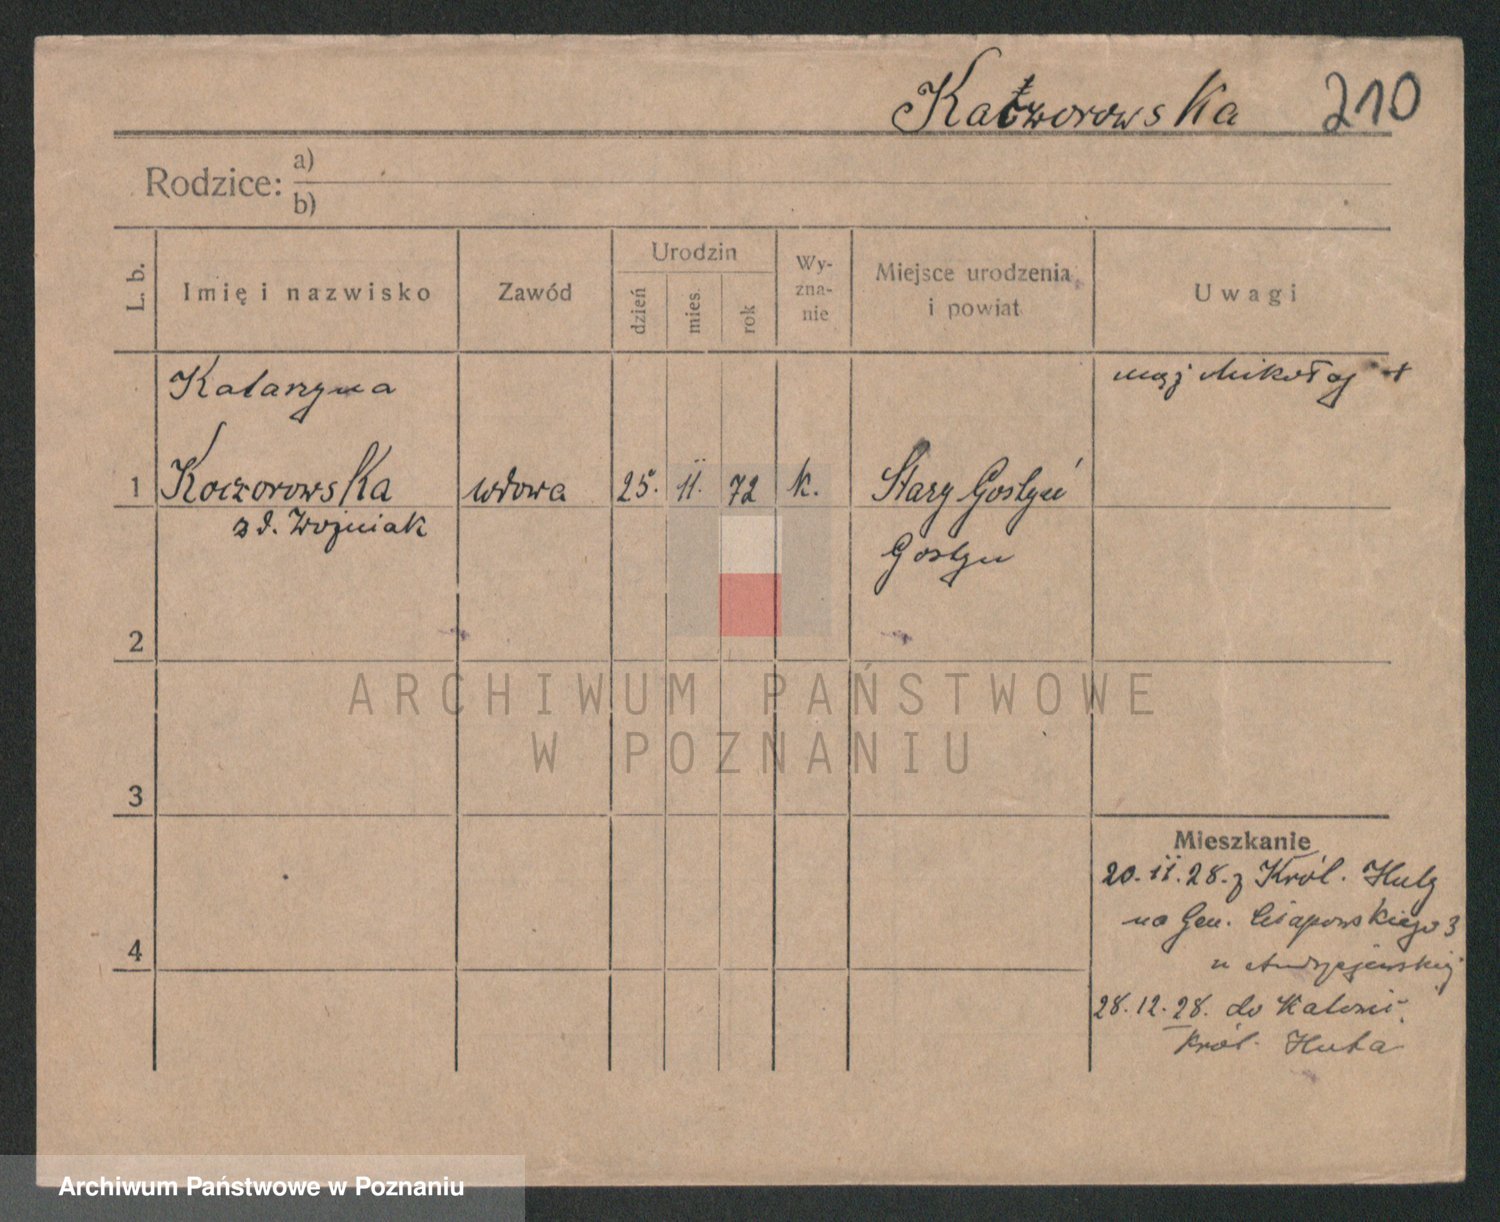 Kaczorowska 210
Rodzice: a)
b)
L. b.
Imię i nazwisko
Zawód
Urodzin
dzień
mies.
rok
Wy-
zna-
nie
Miejsce urodzenia
i powiat
Uwagi
Katarzyna
mąż Mikołaj +
1 Koczorowska wdowa 25. II. 72 k. Stary Gostyń
z d. Woźniak
Gostyń
2
ARCHIWUM PAŃSTWOWE
W POZNANIU
3
Mieszkanie
20. II. 28. z Król. Huty
na Gen. Chłapowskiego 3
u Andrzejewskiej
4
28. 12. 28. do Katowi
Król. Huta
Archiwum Państwowe w Poznaniu